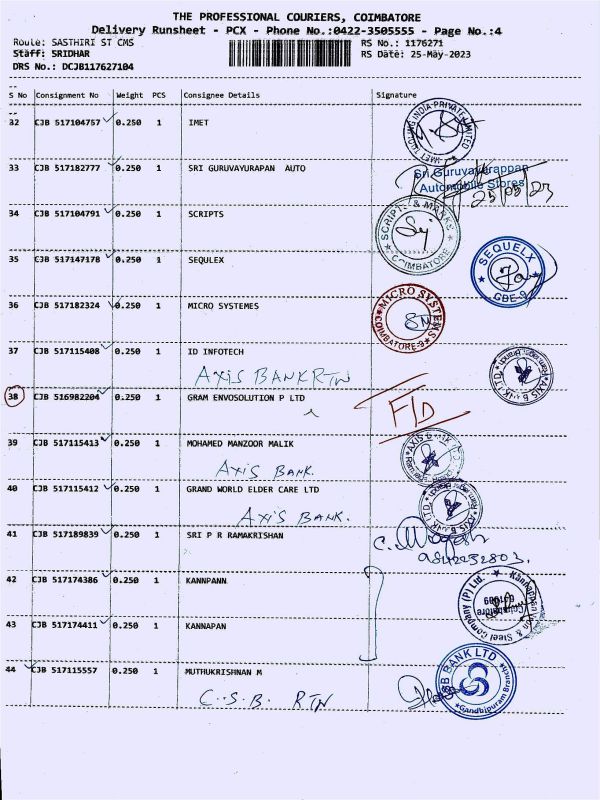 THE PROFESSIONAL COURIERS, COIMBATORE
Delivery Runsheet - PCX - Phone No.:0422-3505555 - Page No.:4
Route: SASTHIRI ST CMS RS No.: 1176271
Staff: SRIDHAR RS Date: 25-May-2023
DRS No.: DCJB117627104
S No Consignment No Weight PCS Consignee Details Signature
32 CJB 517104757 0.250 1 IMET
IMET TRADING INDIA PRIVATE LIMITED
33 CJB 517182777 0.250 1 SRI GURUVAYURAPAN AUTO
Sri Guruvayurappan
Automobile Stores
25/05/23
34 CJB 517104791 0.250 1 SCRIPTS
SCRIPTS & MARKS
COIMBATORE
35 CJB 517147178 0.250 1 SEQULEX
SEQUELX
CBE-9
36 CJB 517182324 0.250 1 MICRO SYSTEMES
MICRO SYSTEMS
COIMBATORE-9
37 CJB 517115408 0.250 1 ID INFOTECH
AXIS BANK RTN
AXIS BANK LTD.
38 CJB 516982204 0.250 1 GRAM ENVOSOLUTION P LTD
F/D
39 CJB 517115413 0.250 1 MOHAMED MANZOOR MALIK
AXIS BANK.
40 CJB 517115412 0.250 1 GRAND WORLD ELDER CARE LTD
AXIS BANK.
41 CJB 517189839 0.250 1 SRI P R RAMAKRISHAN
42 CJB 517174386 0.250 1 KANNPANN
Kannappan
& Steel Company (P) Ltd.
43 CJB 517174411 0.250 1 KANNAPAN
44 CJB 517115557 0.250 1 MUTHUKRISHNAN M
C.S.B. RTN
SB BANK LTD
Gandhipuram Branch